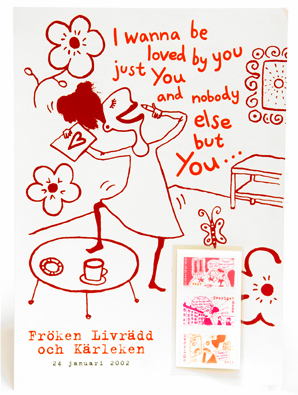 I wanna be
loved by you
just You
and nobody
else
but
You...
Sverige
Fröken Livrädd
och Kärleken
24 januari 2002